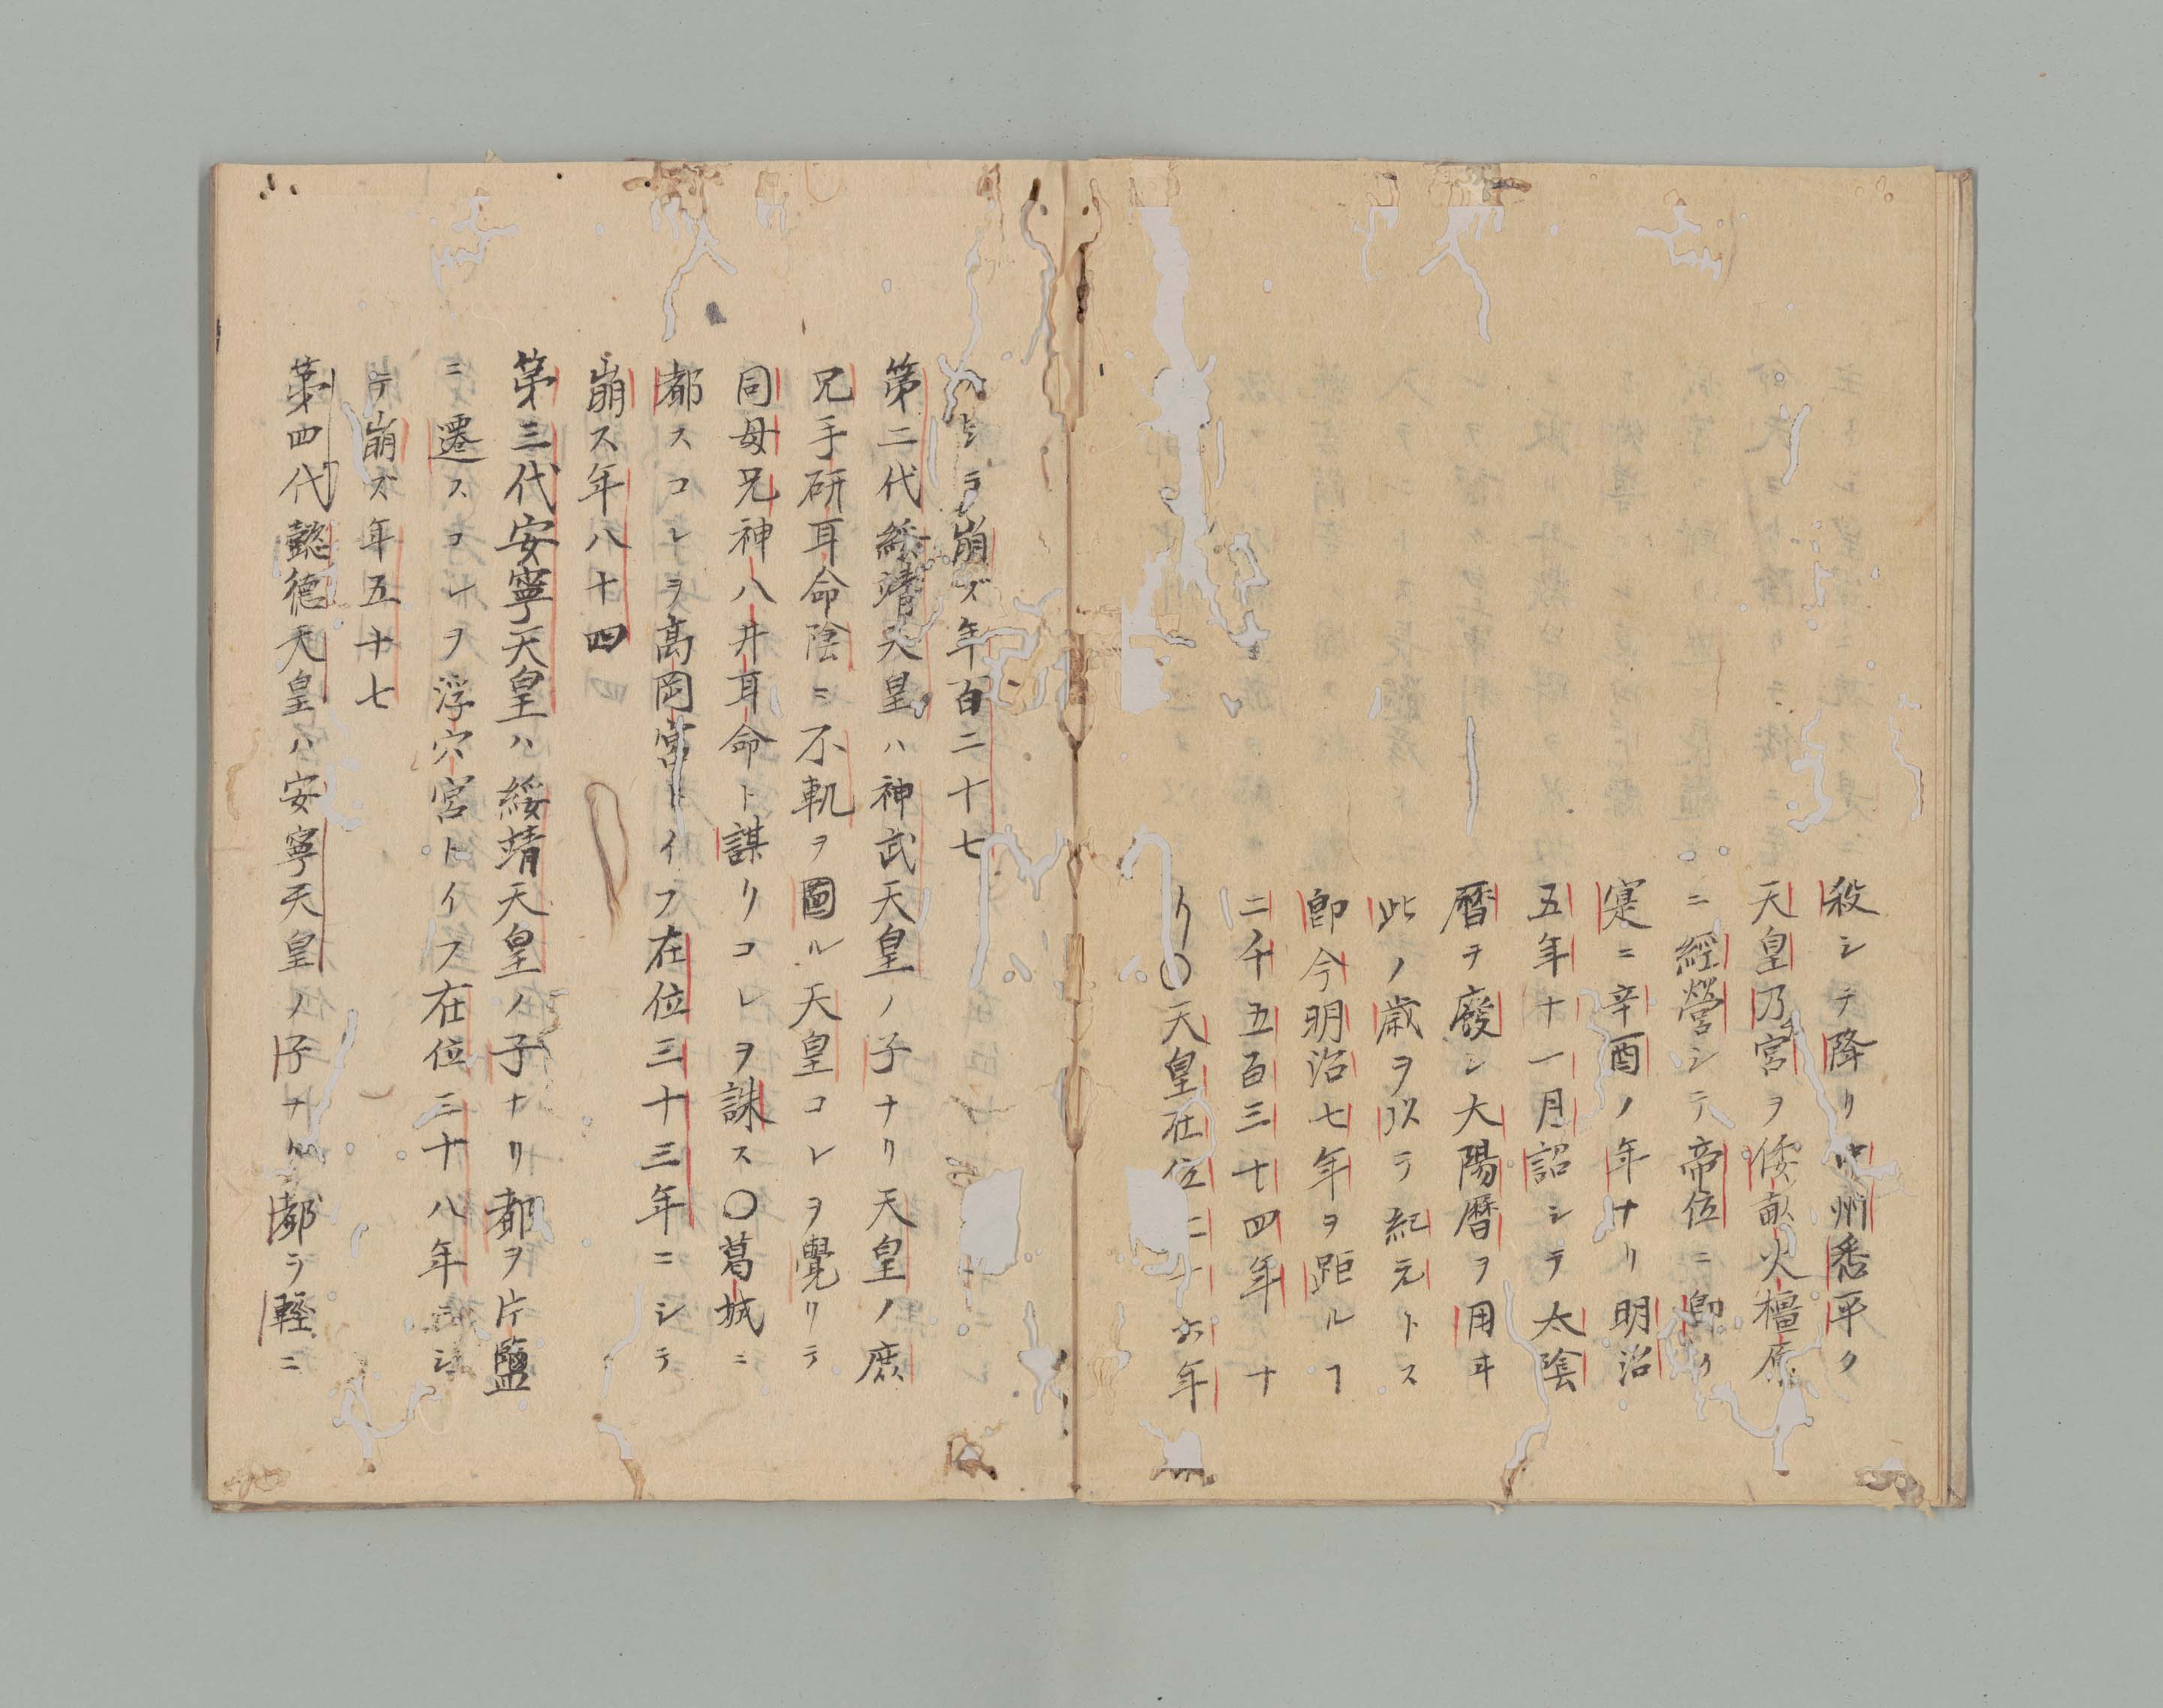 殺シテ降リ中州悉平ク
天皇乃宮ヲ倭畝火橿原
ニ經營シテ帝位ニ即ク
寔ニ辛酉ノ年ナリ明治
五年十一月詔シテ太陰
曆ヲ廢シ大陽曆ヲ用ヰ
此ノ歳ヲ以テ紀元トス
卽今明治七年ヲ距ルヿ
二千五百三十四年ナ
リ〇天皇在位七十六年
ニシテ崩ズ年百二十七
第二代綏靖天皇ハ神武天皇ノ子ナリ天皇ノ庶
兄手研耳命陰ニ不軌ヲ圖ル天皇コレヲ覺リテ
同母兄神八井耳命ト謀リコレヲ誅ス〇葛城ニ
都スコレヲ高岡宮トイフ在位三十三年ニシテ
崩ス年八十四
第三代安寧天皇ハ綏靖天皇ノ子ナリ都ヲ片鹽
ニ遷スコレヲ浮穴宮トイフ在位三十八年ニシ
テ崩ズ年五十七
第四代懿德天皇ハ安寧天皇ノ子ナリ都ヲ輕ニ